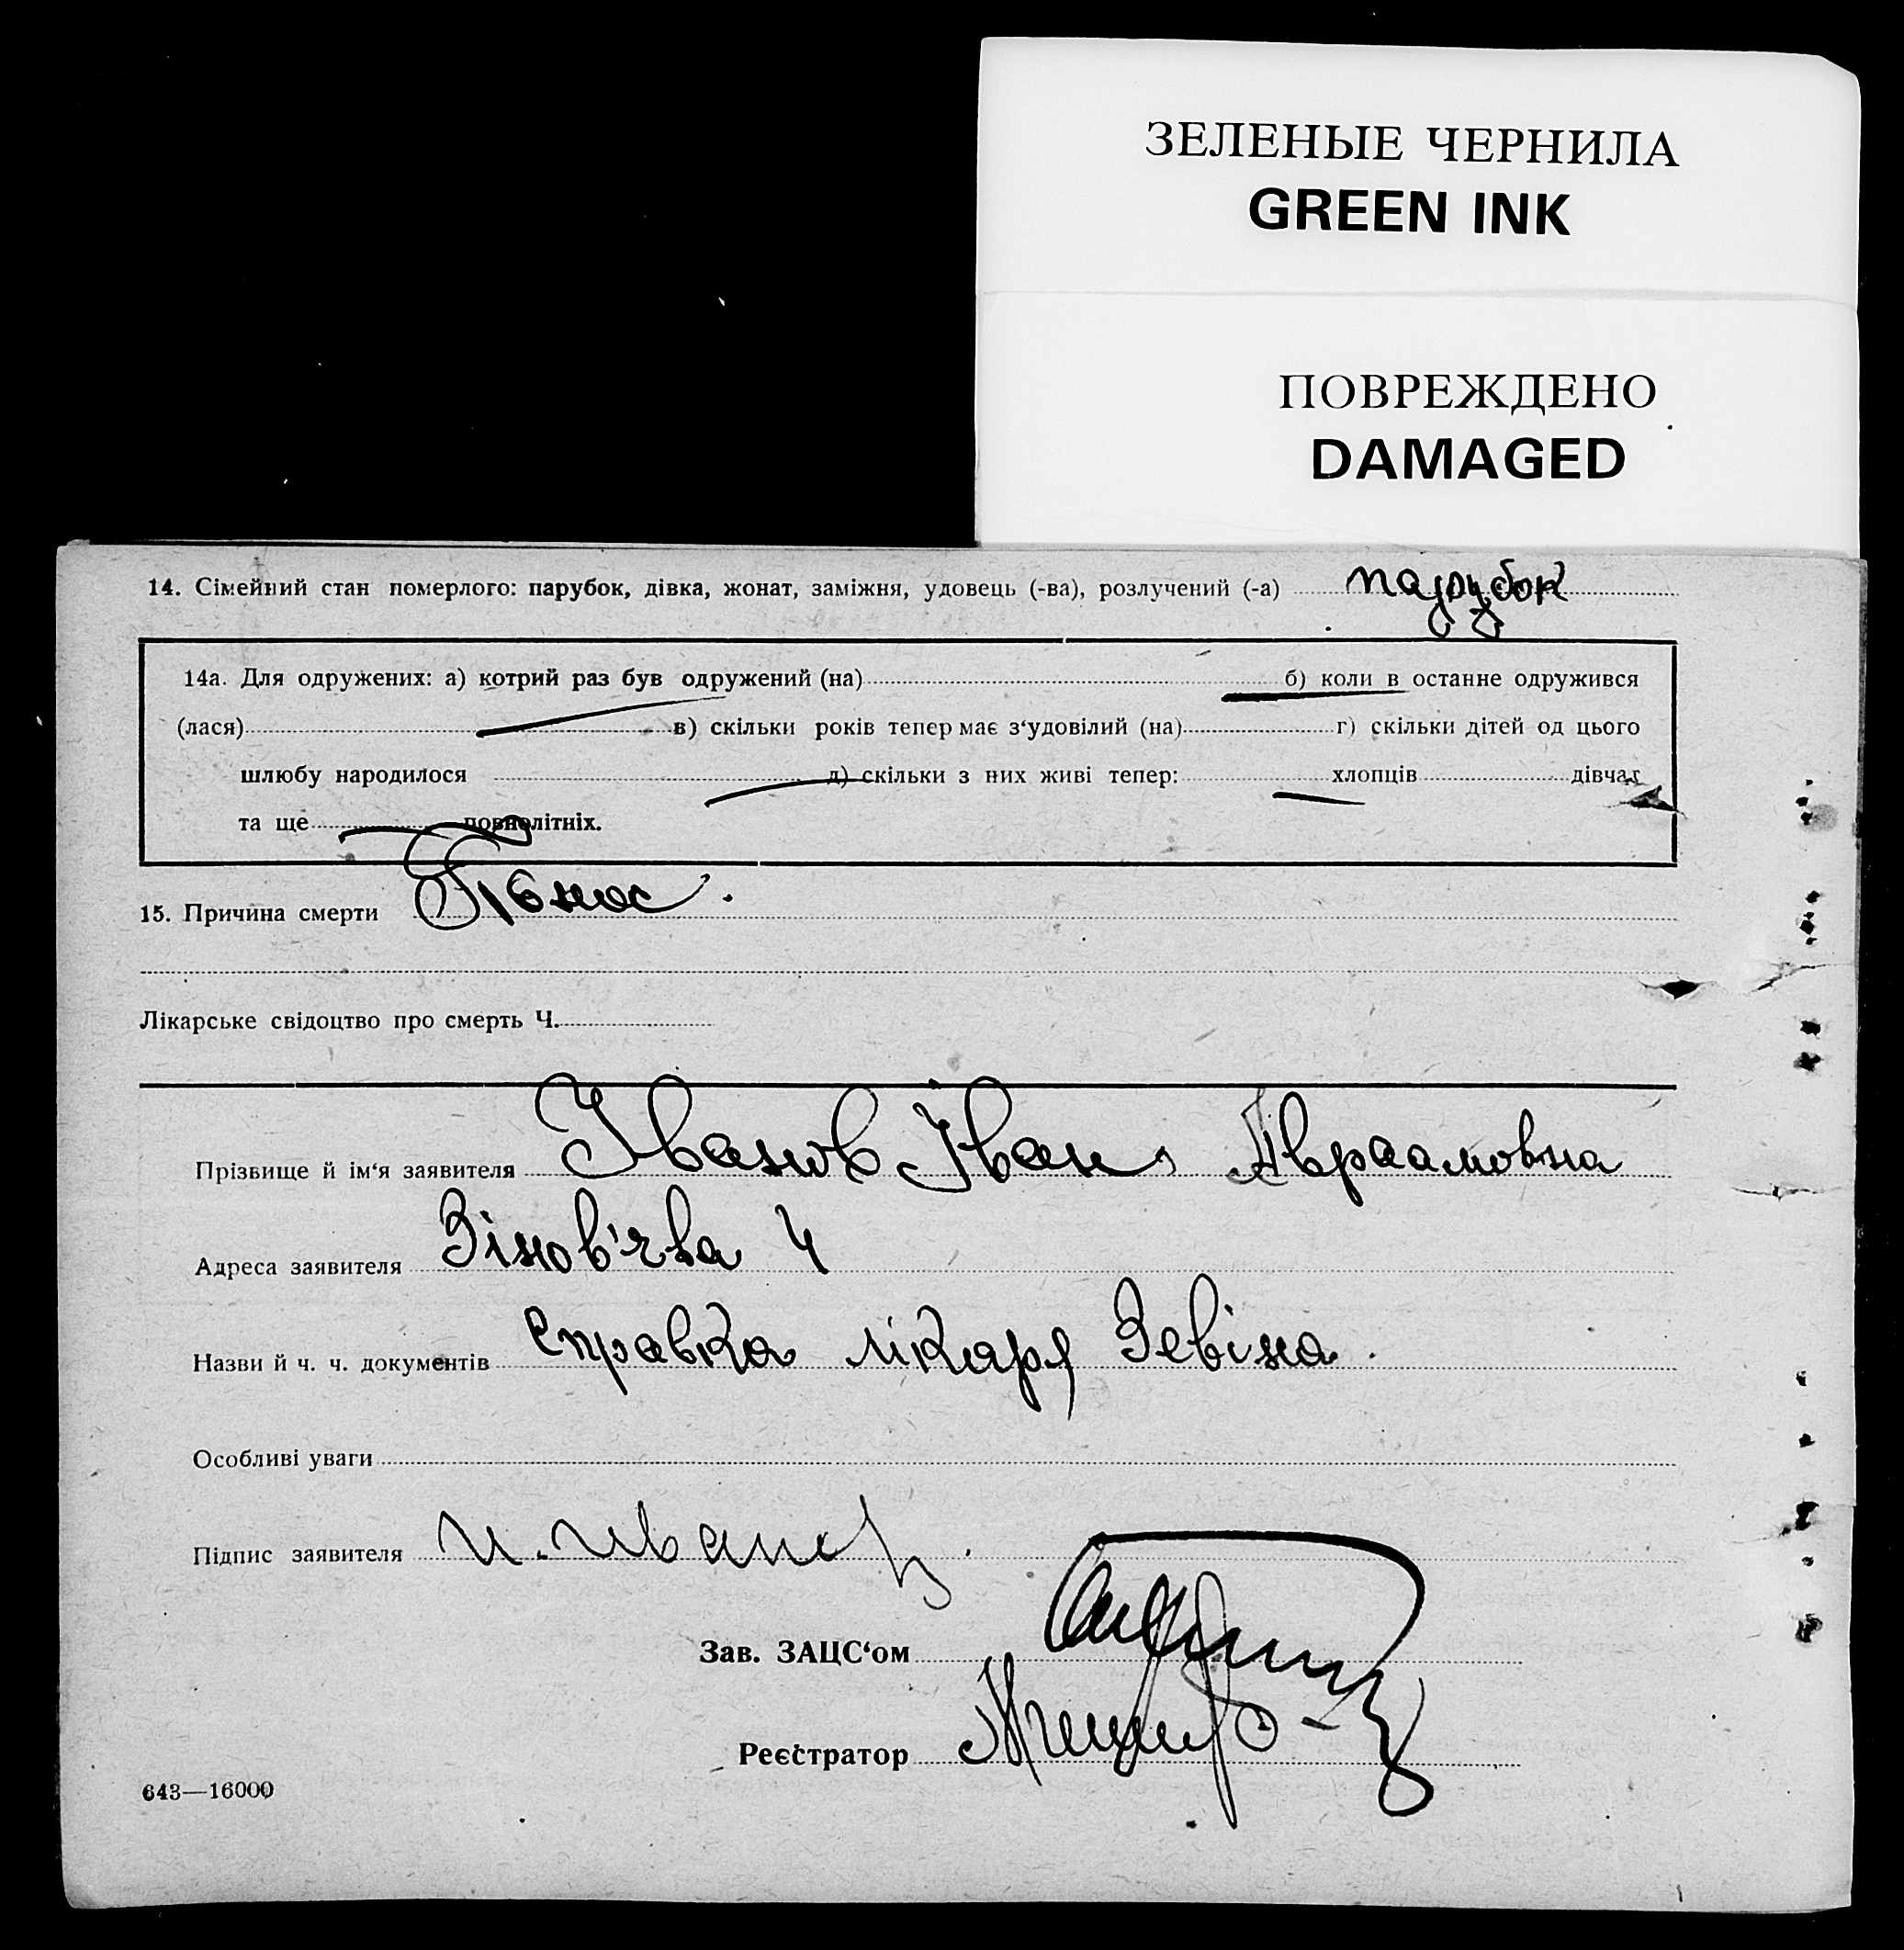 ЗЕЛЕНЫЕ ЧЕРНИЛА
GREEN INK
ПОВРЕЖДЕНО
DAMAGED
14. Сімейний стан померлого: парубок, дівка, жонат, заміжня, удовець (-ва), розлучений (-а) парубок
14а. Для одружених: а) котрий раз був одружений (на) б) коли в останне одружився
(лася) в) скільки років тепер має з‘удовілий (на) г) скільки дітей од цього
шлюбу народилося д) скільки з них живі тепер: хлопців дівчат
та ще повнолітніх.
15. Причина смерти Пронос.
Лікарське свідоцтво про смерть Ч.
Прізвище й ім‘я заявителя Іванов Іван Авраамовна
Адреса заявителя Зінов'єва 4
Назви й ч. ч. документів Справка лікаря Зевіна.
Особливі уваги
Підпис заявителя И. Иванов.
Зав. ЗАЦС‘ом
Реєстратор
643—16000